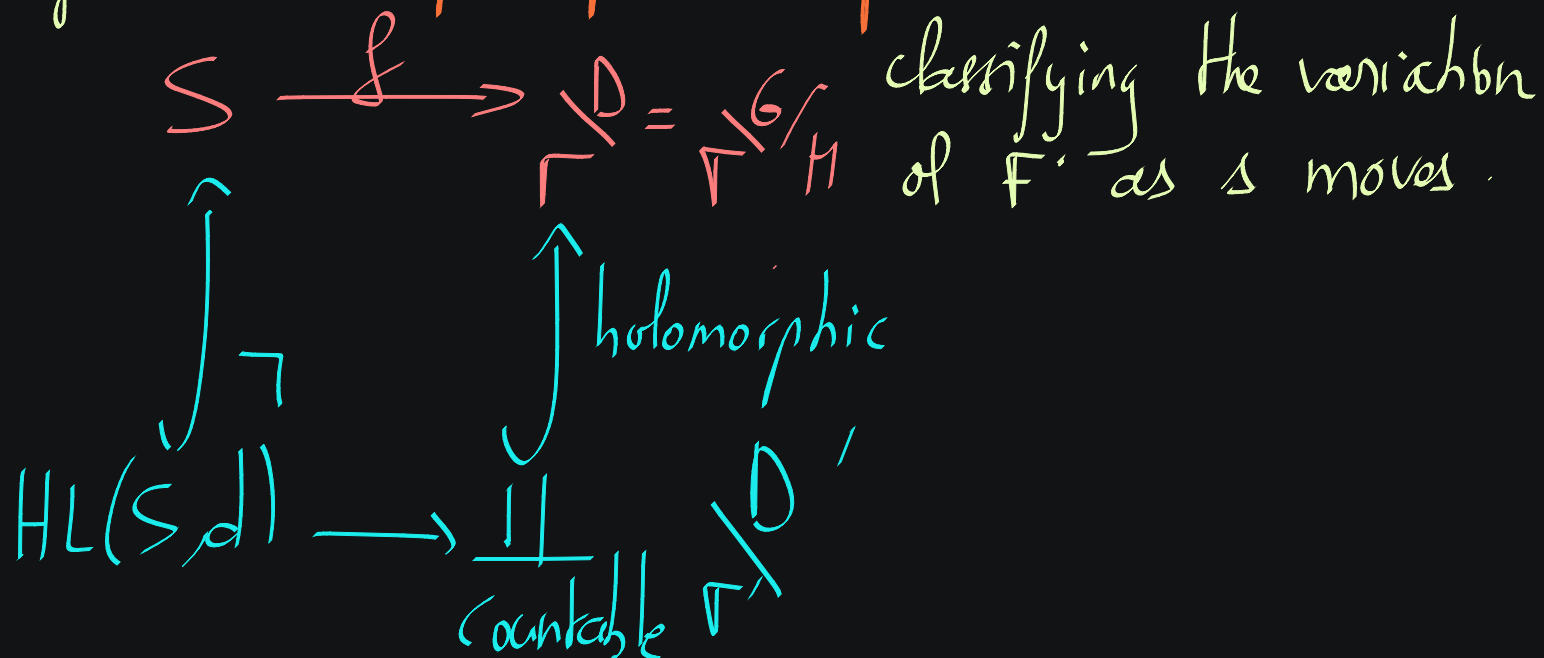 S f → Γ\D = Γ\G/H classifying the variation
of F· as s moves.
holomorphic
HL(S,d) → ∐ Γ'\D'
countable